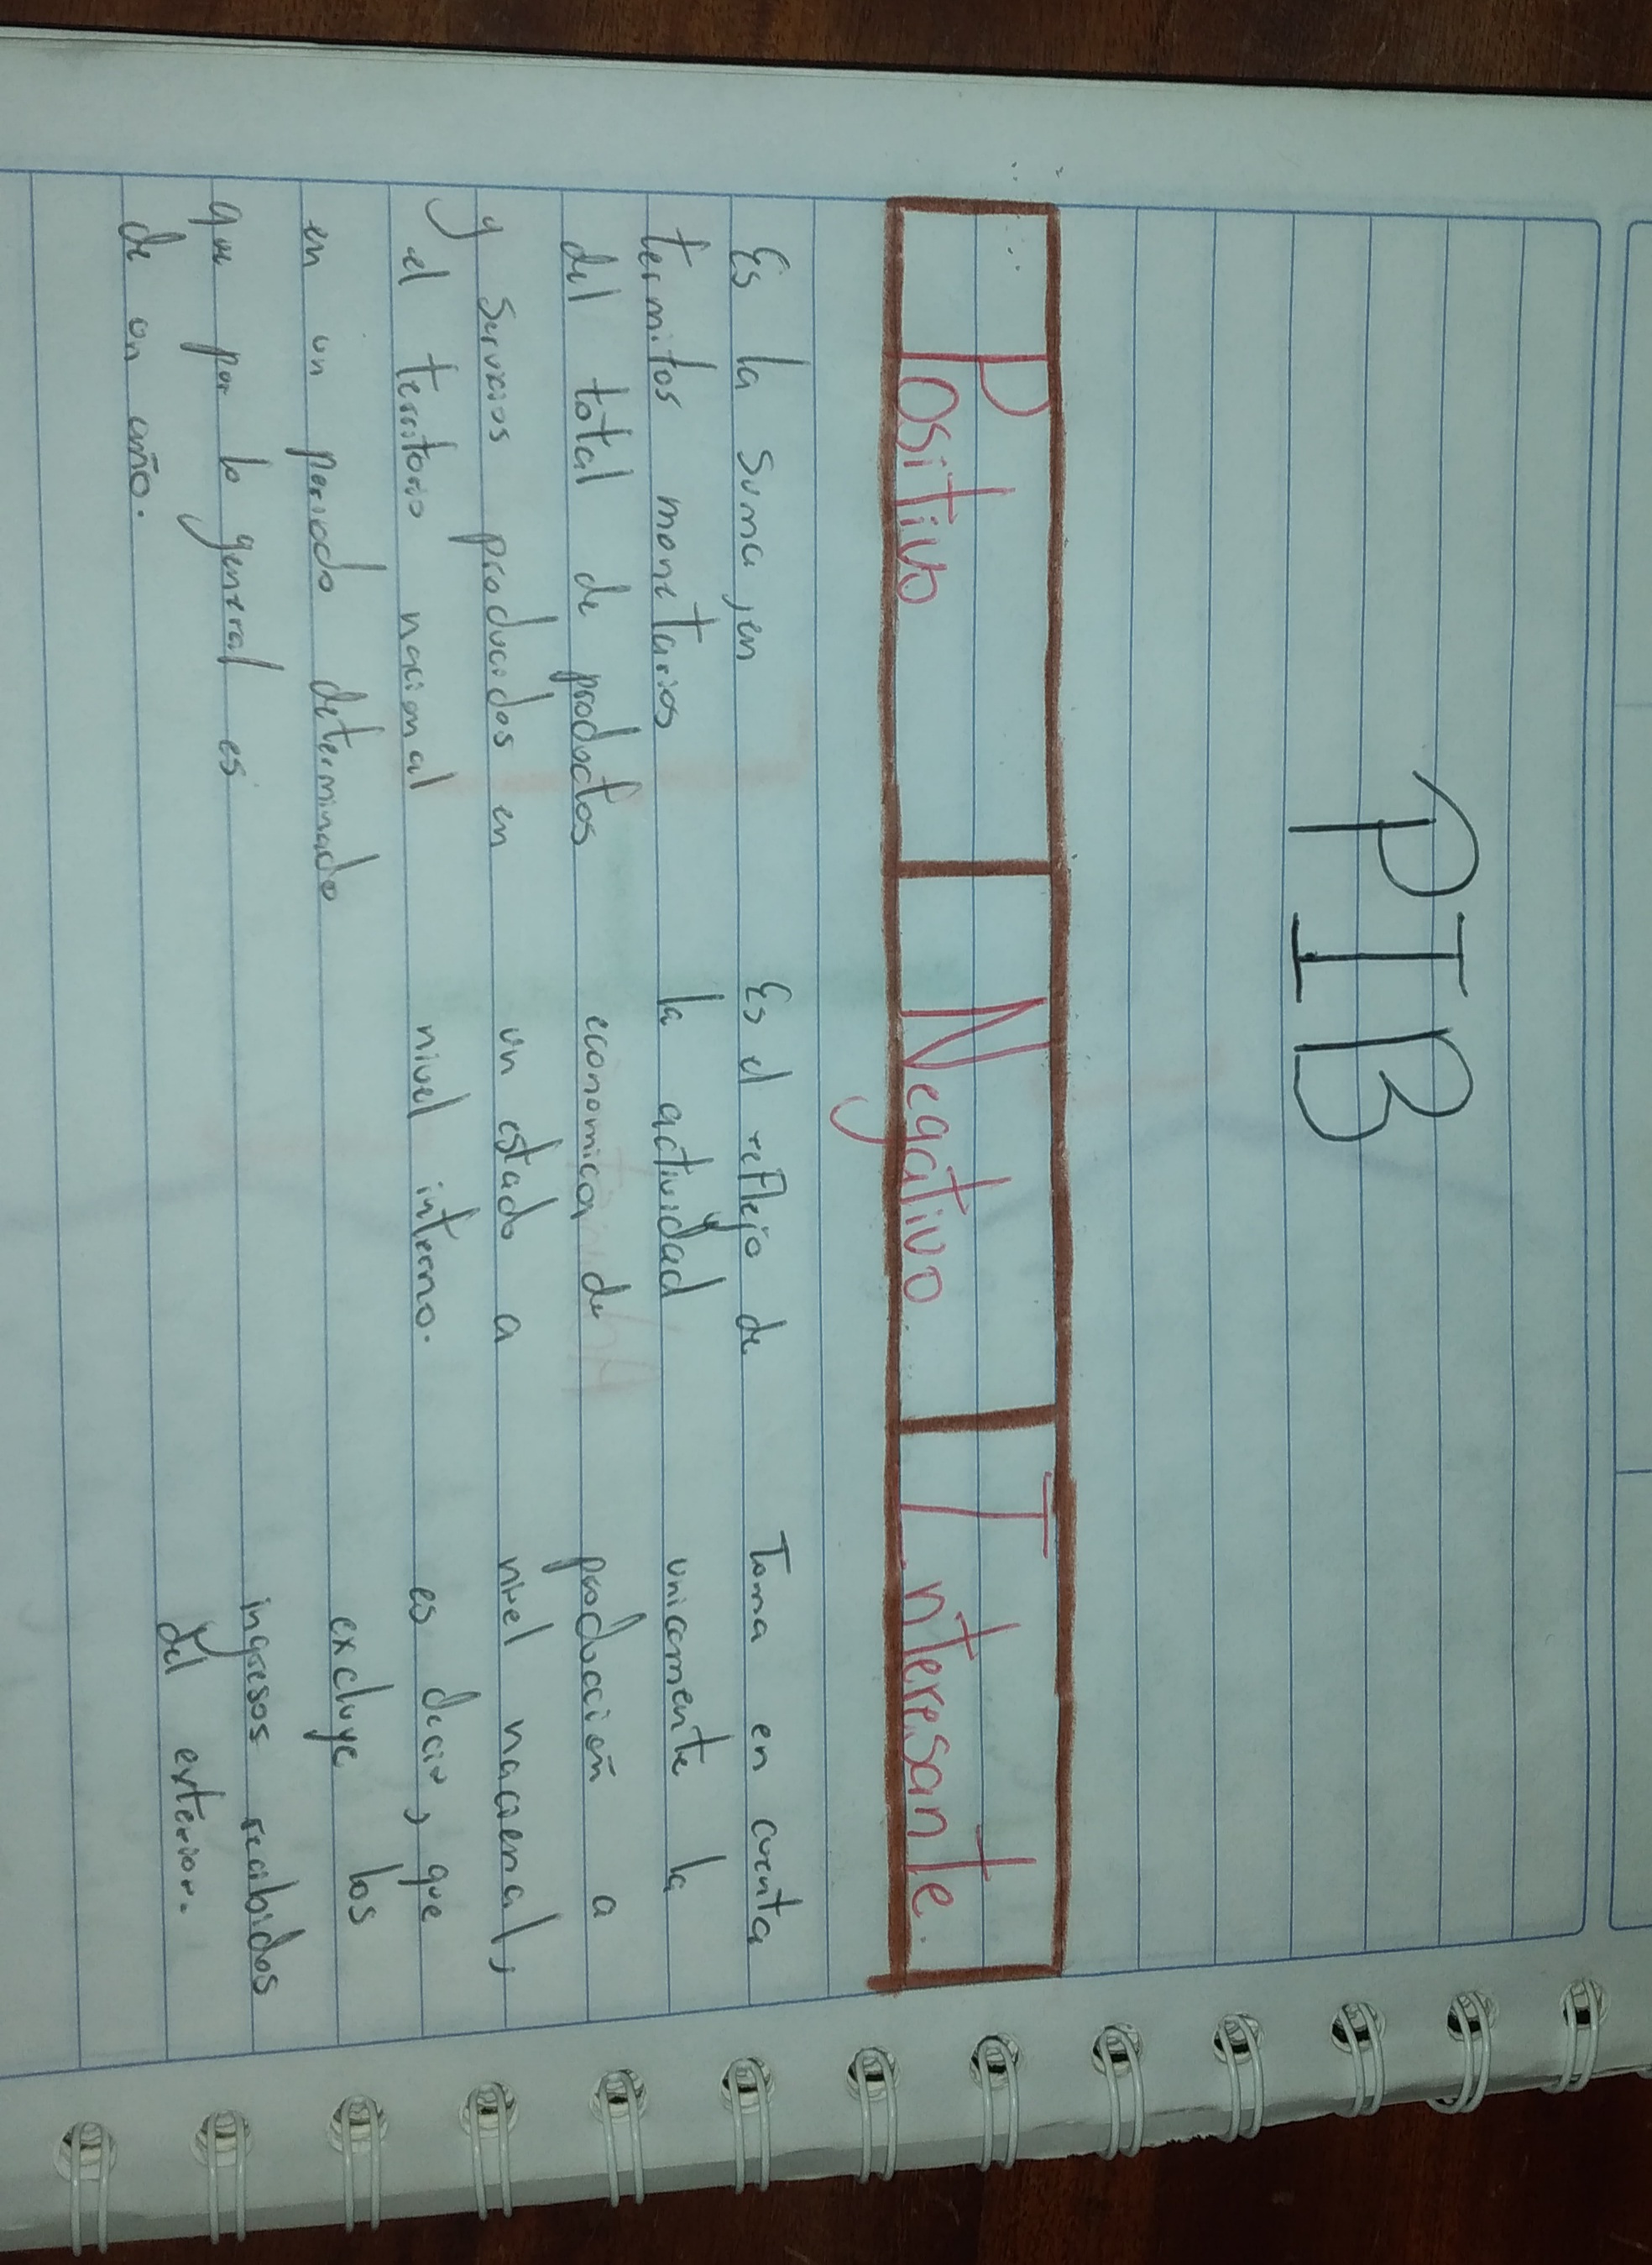 PIB
Positivo
Negativo.
Interesante.
Es la suma, en
termitos monetarios
del total de productos
y servicios producidos en
y el territorio nacional
en un periodo determinado
que por lo general es
de un año.
Es el reflejo de
la actividad
economica de
un estado a
nivel interno.
Toma en cuenta
unicamente la
producción a
nivel nacional,
es decir, que
excluye los
ingresos recibidos
del exterior.